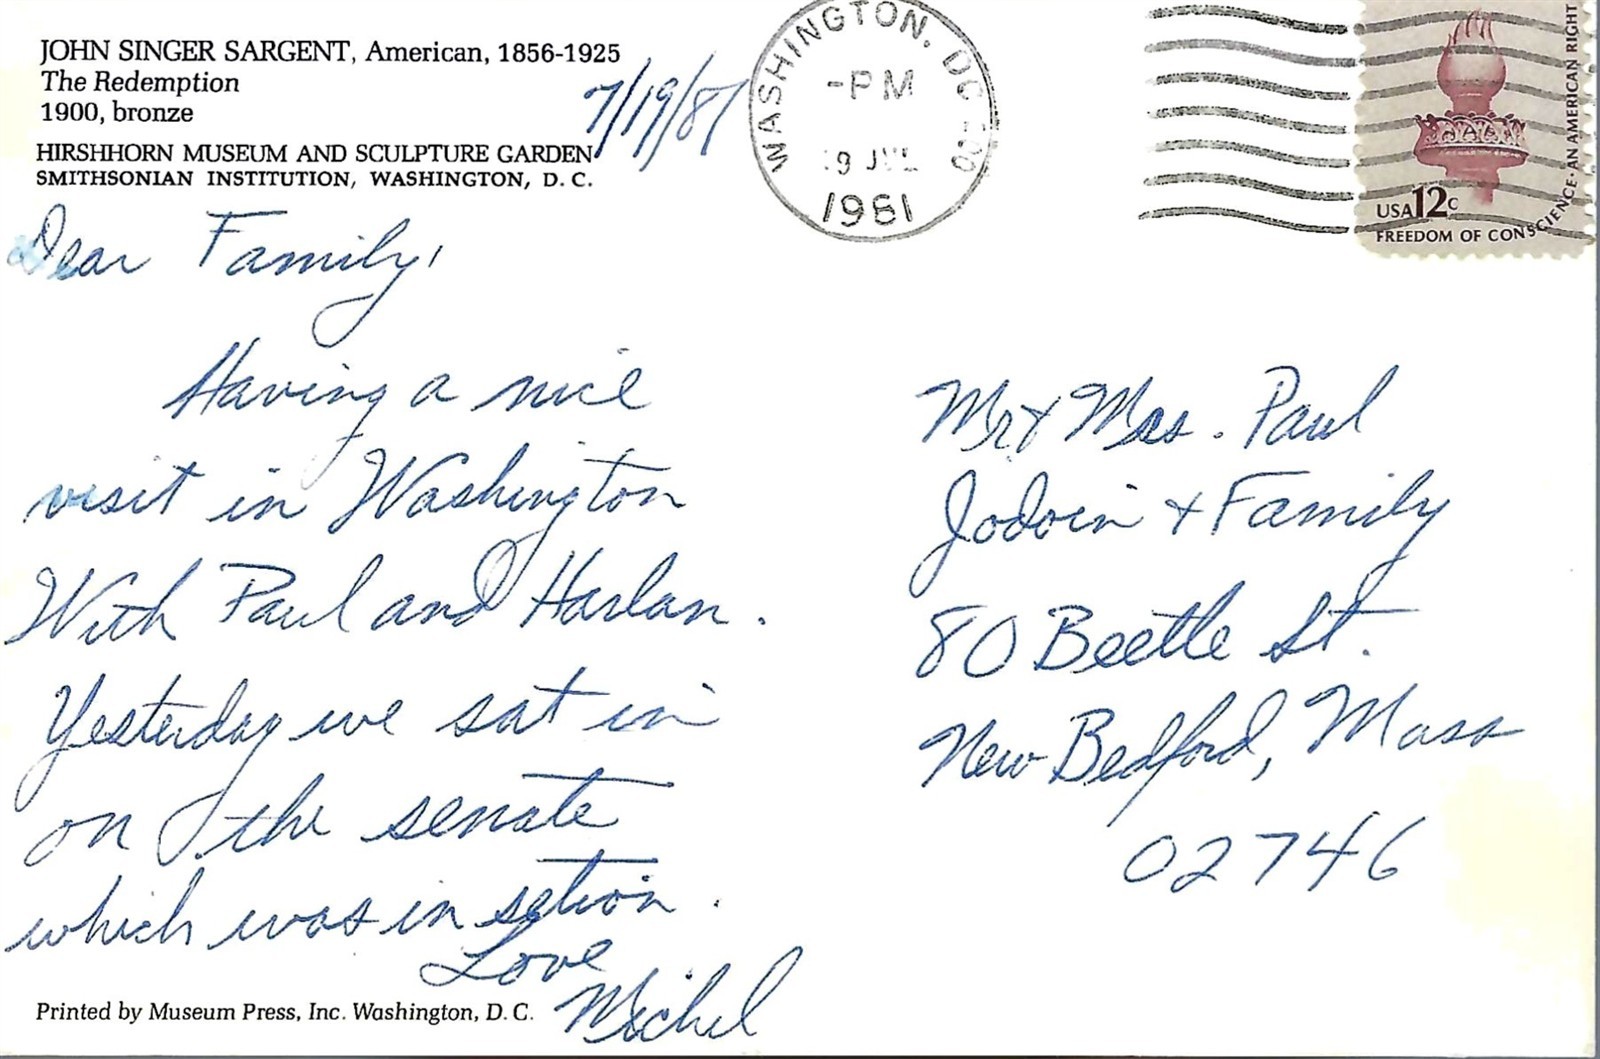 JOHN SINGER SARGENT, American, 1856-1925
The Redemption
1900, bronze
HIRSHHORN MUSEUM AND SCULPTURE GARDEN
SMITHSONIAN INSTITUTION, WASHINGTON, D. C.
7/19/81
WASHINGTON, DC
-PM
JUL
1981
USA 12c
FREEDOM OF CONSCIENCE · AN AMERICAN RIGHT
Dear Family,
Having a nice
visit in Washington
With Paul and Harlan.
Yesterday we sat in
on the senate
which was in
Love
Michel
Mr & Mrs. Paul
Jodoin & Family
80 Beetle St.
New Bedford, Mass
02746
Printed by Museum Press, Inc. Washington, D. C.